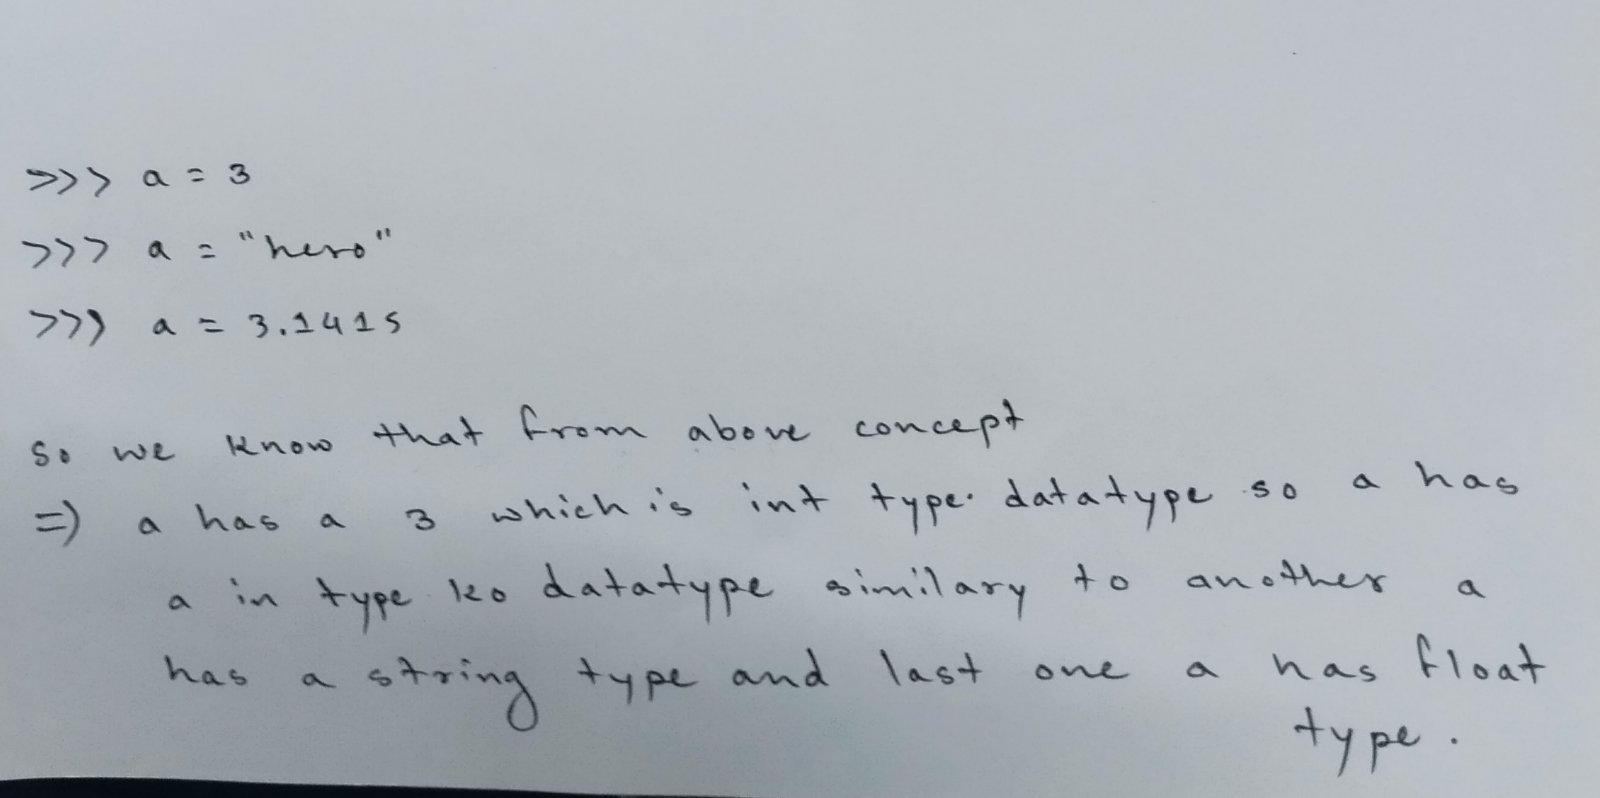 >>> a = 3
>>> a = "hero"
>>> a = 3.1415
So we know that from above concept
=) a has a 3 which is int type. datatype so a has
a in type ko datatype similary to another a
has a string type and last one a has float
type.